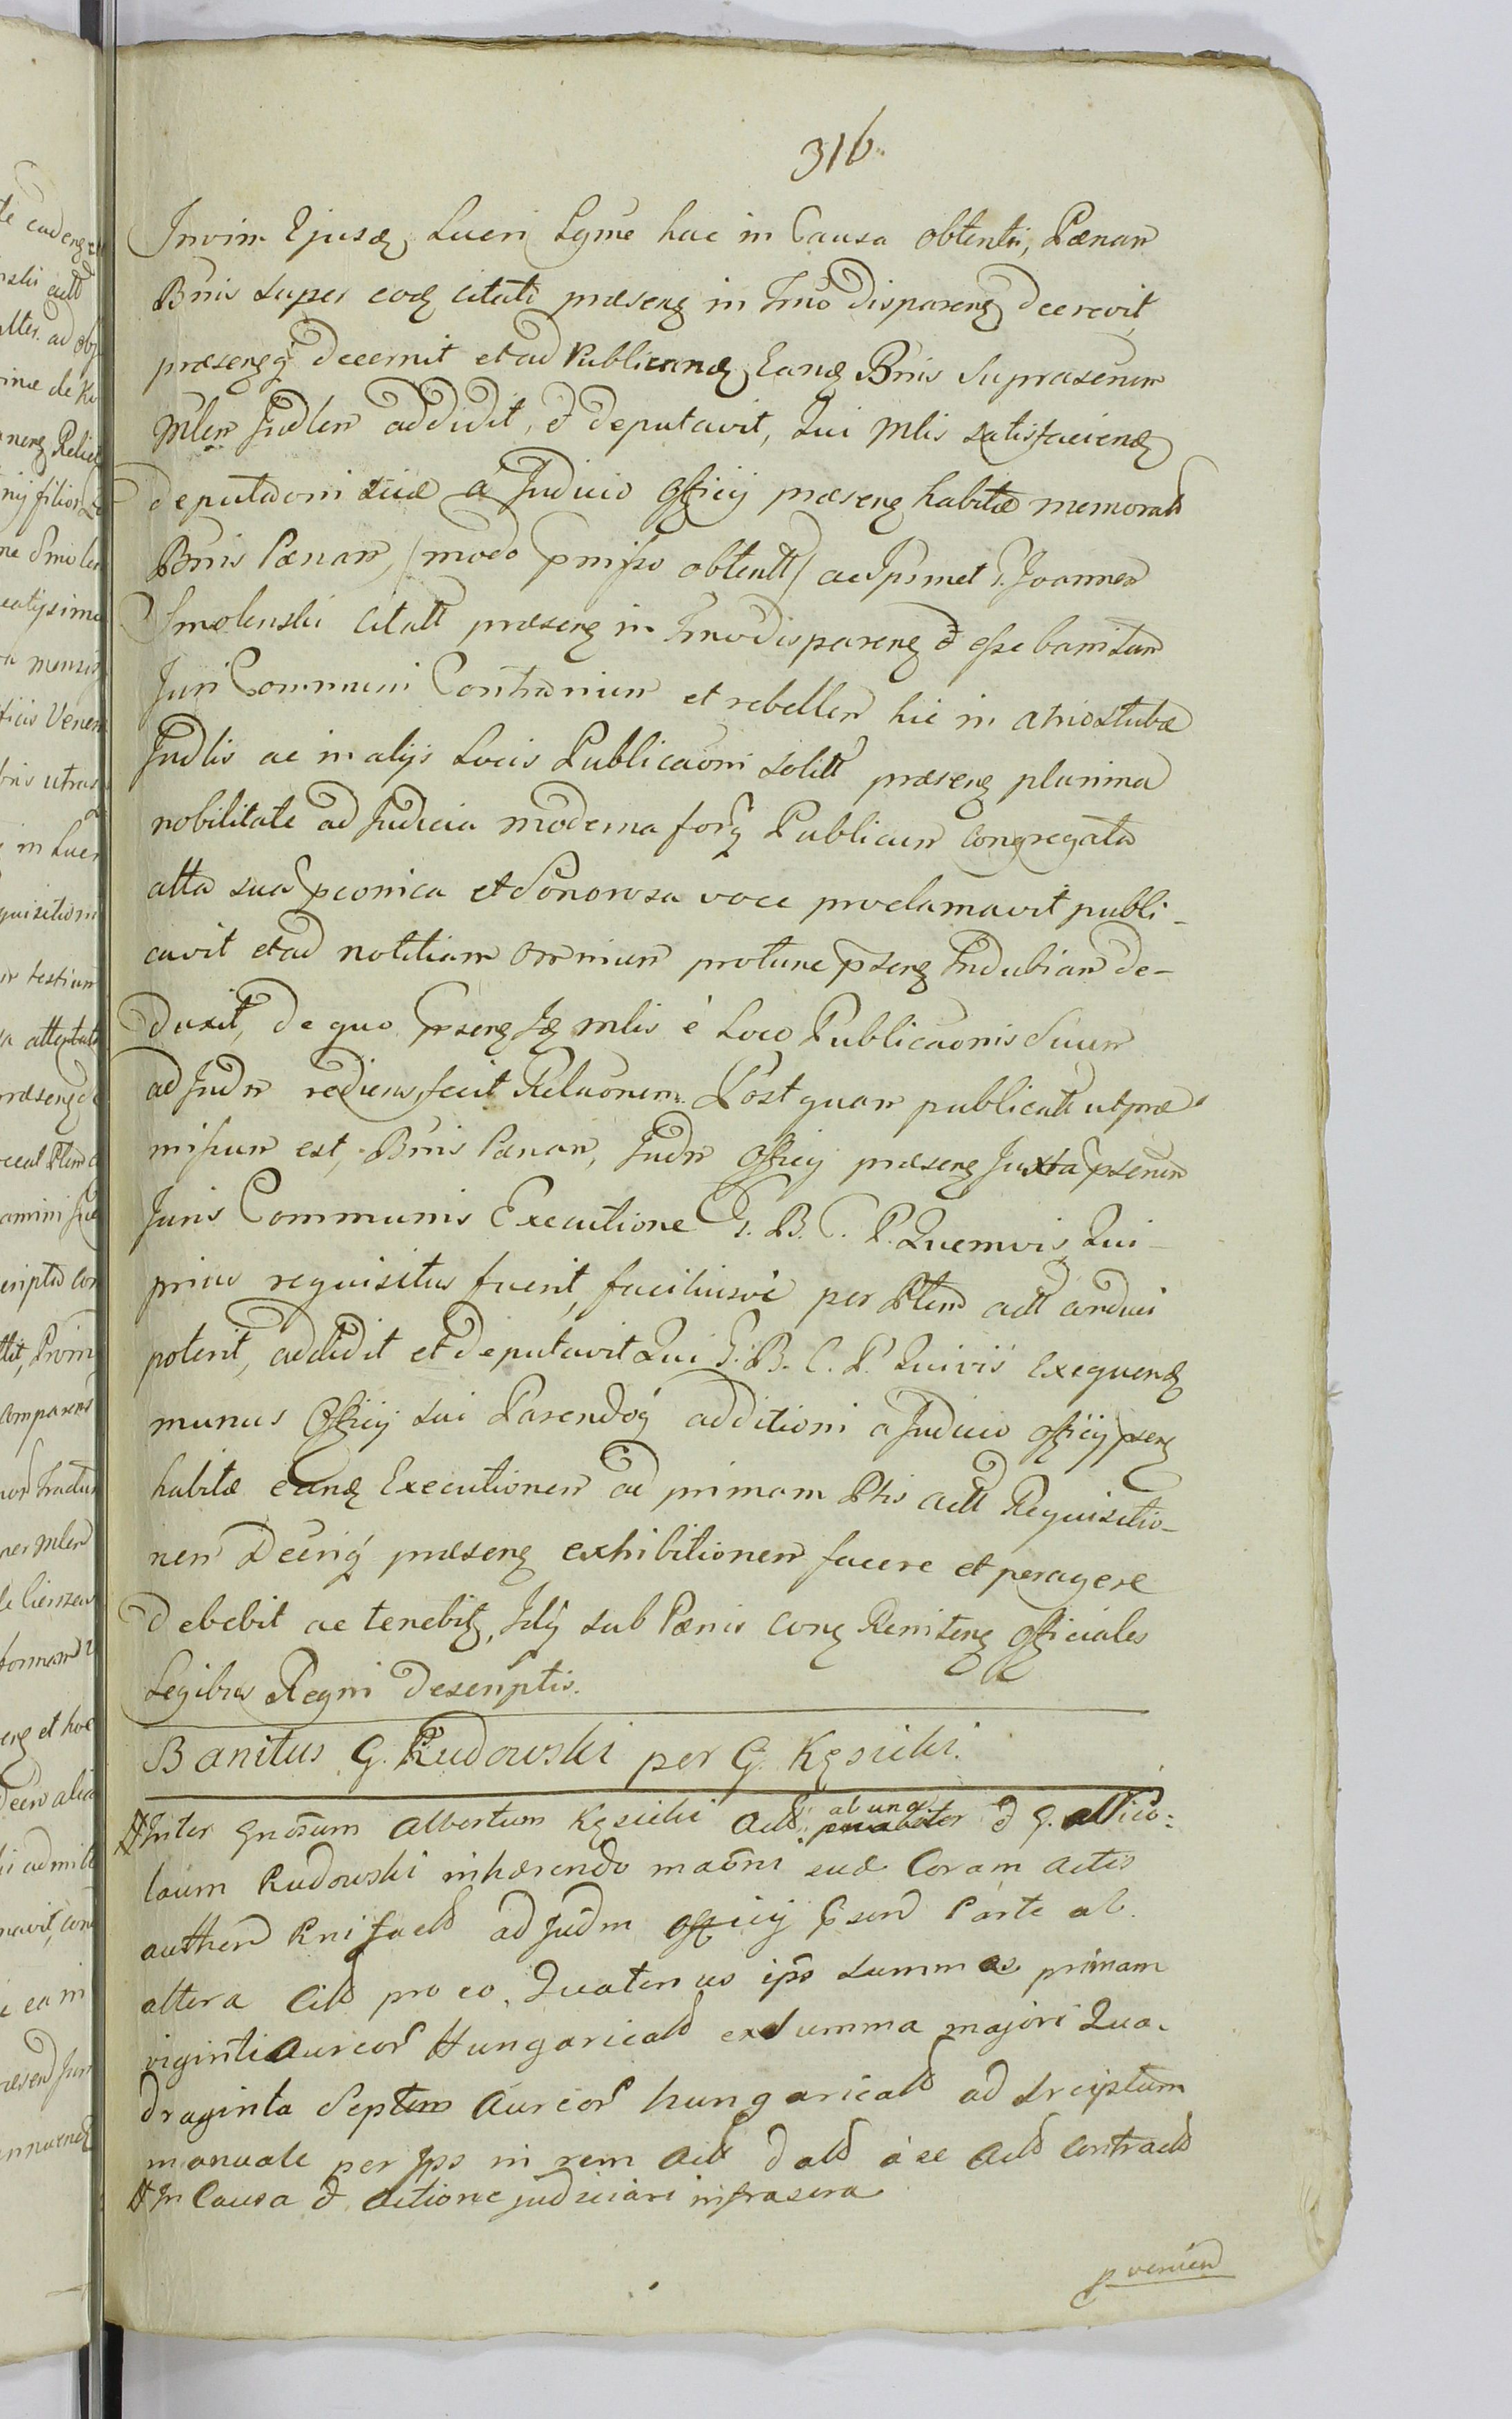 316.
Invim Ejusq Lucri Lgme hac in Causa obtentr, Pænam
Bnis super eodq citati præseng in Trno dispareng decrevit
præsengq decernit et ad Publicandq Eandq Bnis Supraserum
Mlem Judlem addidit, et deputavit, Qui Mlis satisfaciendq
deputaoni suæ a Judicio Officij præseng habitæ memoratt
Bnis Pænam, /modo pmisso obtentt/ ac Ipsmet G. Joannem
Smolenski citatt præseng in Trno dispareng et esse banitum
Juri Communi Contrarium et rebellem hic in atrio Stubæ
Judlis ac in alijs Locis Publicaoni solitt præseng plurima
nobilitate ad Judicia moderna forq Publicum congregata
alta sua pconica et Sonorosa voce proclamavit publi-
cavit et ad notitiam omnium protunc pseng Indubiam de-
duxit, de quo pseng Jdq mlis è Loco Publicaonis Suum
ad Judm rediens fecit Relaonem. Postquam publicatt ut præ-
missum est, Bnis Pænam, Judm Officij præseng Juxta psenem
Juris Communis Executione G. B. C. P. Quemvis Qui-
prius requisitus fuerit, faciliusve per Ptem actt adduci
poterit, addidit et deputavit Qui G. B. C. P. Quivis exequendq
munus Officij sui Parendoq additioni a Judicio officij pseng
habitæ eandq Executionem ad primam Ptis actt Requisitio-
nem Decriq præseng exhibitionem facere et peragere
debebit ac tenebitq, Jdq sub Pænis cong Reniteng Officiales
Legibus Regni descriptis.
Banitus G. Rudowski per G. Kęsicki.
# Inter Gnosum Albertum Kęsicki Actt. ab una et G. Nico-
laum Rudowski inhærendo maoni suæ Coram Actis
authen Rni factt ad Judm officij psen Parte ab
altera Citt pro eo, Quatenus ips summas primam
viginti Aureor Hungaricatt ex Summa majori Qua-
draginta Septem Aureor hungaricatt ad Srciptum
manuale per Ips in rem Actt datt a se Actt contractt
# In Causa et Actione judiciari infrascra
pvenien